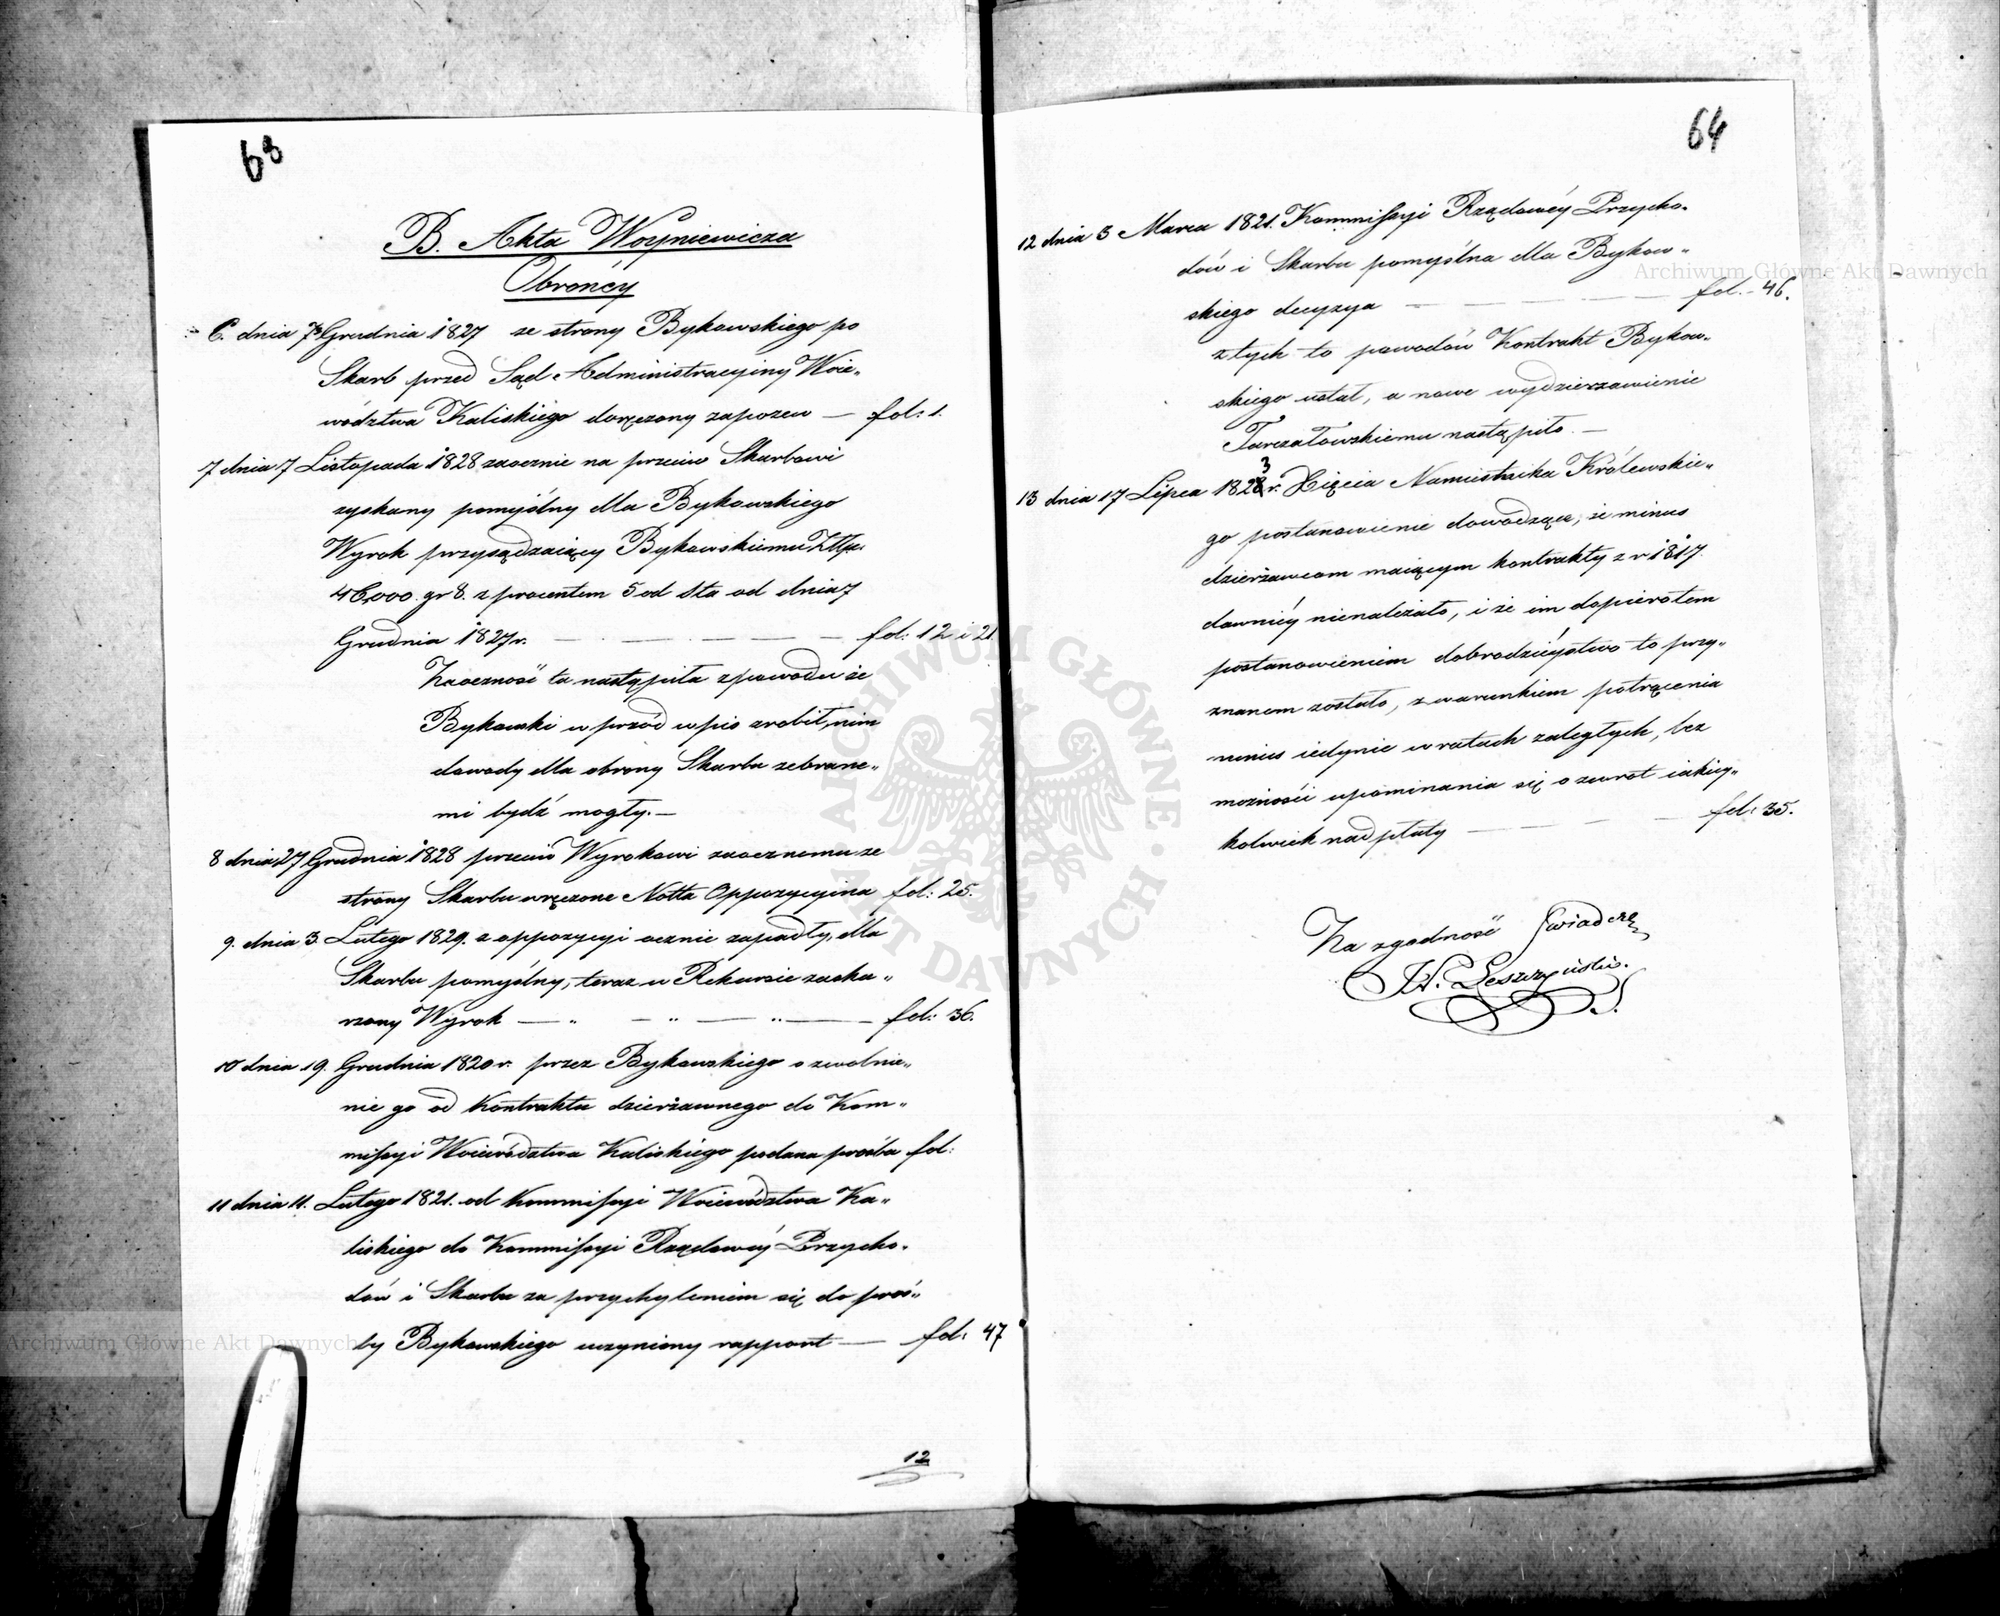 63
B. Akta Woyniewicza
Obrońcy
6. dnia 7 Grudnia 1827 ze strony Bykowskiego po
Skarb przed Sąd Administracyiny Woie„
wództwa Kaliskiego doręczony zapozew — fol: 1.
7 dnia 7 Listopada 1828 zaocznie na przeciw Skarbowi
zyskany pomyślny dla Bykowskiego
Wyrok przysądzaiący Bykowskiemu Złłp:
46,000. gr 8. z procentem 5 od sta od dnia 7
Grudnia 1827 r. — — — — fol: 12 i 21.
Zaoczność ta nastąpiła z powodu że
Bykowski w przód wpis zrobił, nim
dowody dla obrony Skarbu zebrane„
mi bydź mogły. —
8 dnia 27 Grudnia 1828 przeciw Wyrokowi zaocznemu ze
strony Skarbu wręczone Notta Oppozycyina fol: 25.
9. dnia 3. Lutego 1829. z oppozycyi ocznie zapadły, dla
Skarbu pomyślny, teraz w Rekursie zaska„
rzony Wyrok — „ — „ — „ — fol: 36.
10 dnia 19. Grudnia 1820 r. przez Bykowskiego o zwolnie„
nie go od Kontraktu dzierżawnego do Kom„
missyi Woiewództwa Kaliskiego podana prośba fol:
11 dnia 11. Lutego 1821. od Kommissyi Woiewództwa Ka„
liskiego do Kommissyi Rządowéy Przycho„
dów i Skarbu za przychyleniem się do proś„
by Bykowskiego uczyniony rapport — fol: 47
12
64
12 dnia 3 Marca 1821. Kommissyi Rządowéy Przycho„
dów i Skarbu pomyślna dla Bykow„
skiego decyzya — — — — fol. 46.
z tych to powodów Kontrakt Bykow„
skiego ustał, a nowe wydzierzawienie
Tarczałowskiemu nastąpiło. —
13 dnia 17 Lipca 1823 r. Xięcia Namiestnika Królewskie„
go postanowienie dowodzące, że minus
dzierżawcom maiącym kontrakty z r 1817.
dawniéy nienależało, i że im dopiero tem
postanowieniem dobrodzieystwo to przy„
znanem zostało, z warunkiem potrącenia
minus iedynie w ratach zaległych, bez
możności upominania się o zwrot iakiey„
kolwiek nadpłaty — — — — fol: 35.
Za zgodność świadczę
Leszczyński.
Archiwum Główne Akt Dawnych
Archiwum Główne Akt Dawnych
ARCHIWUM GŁÓWNE AKT DAWNYCH